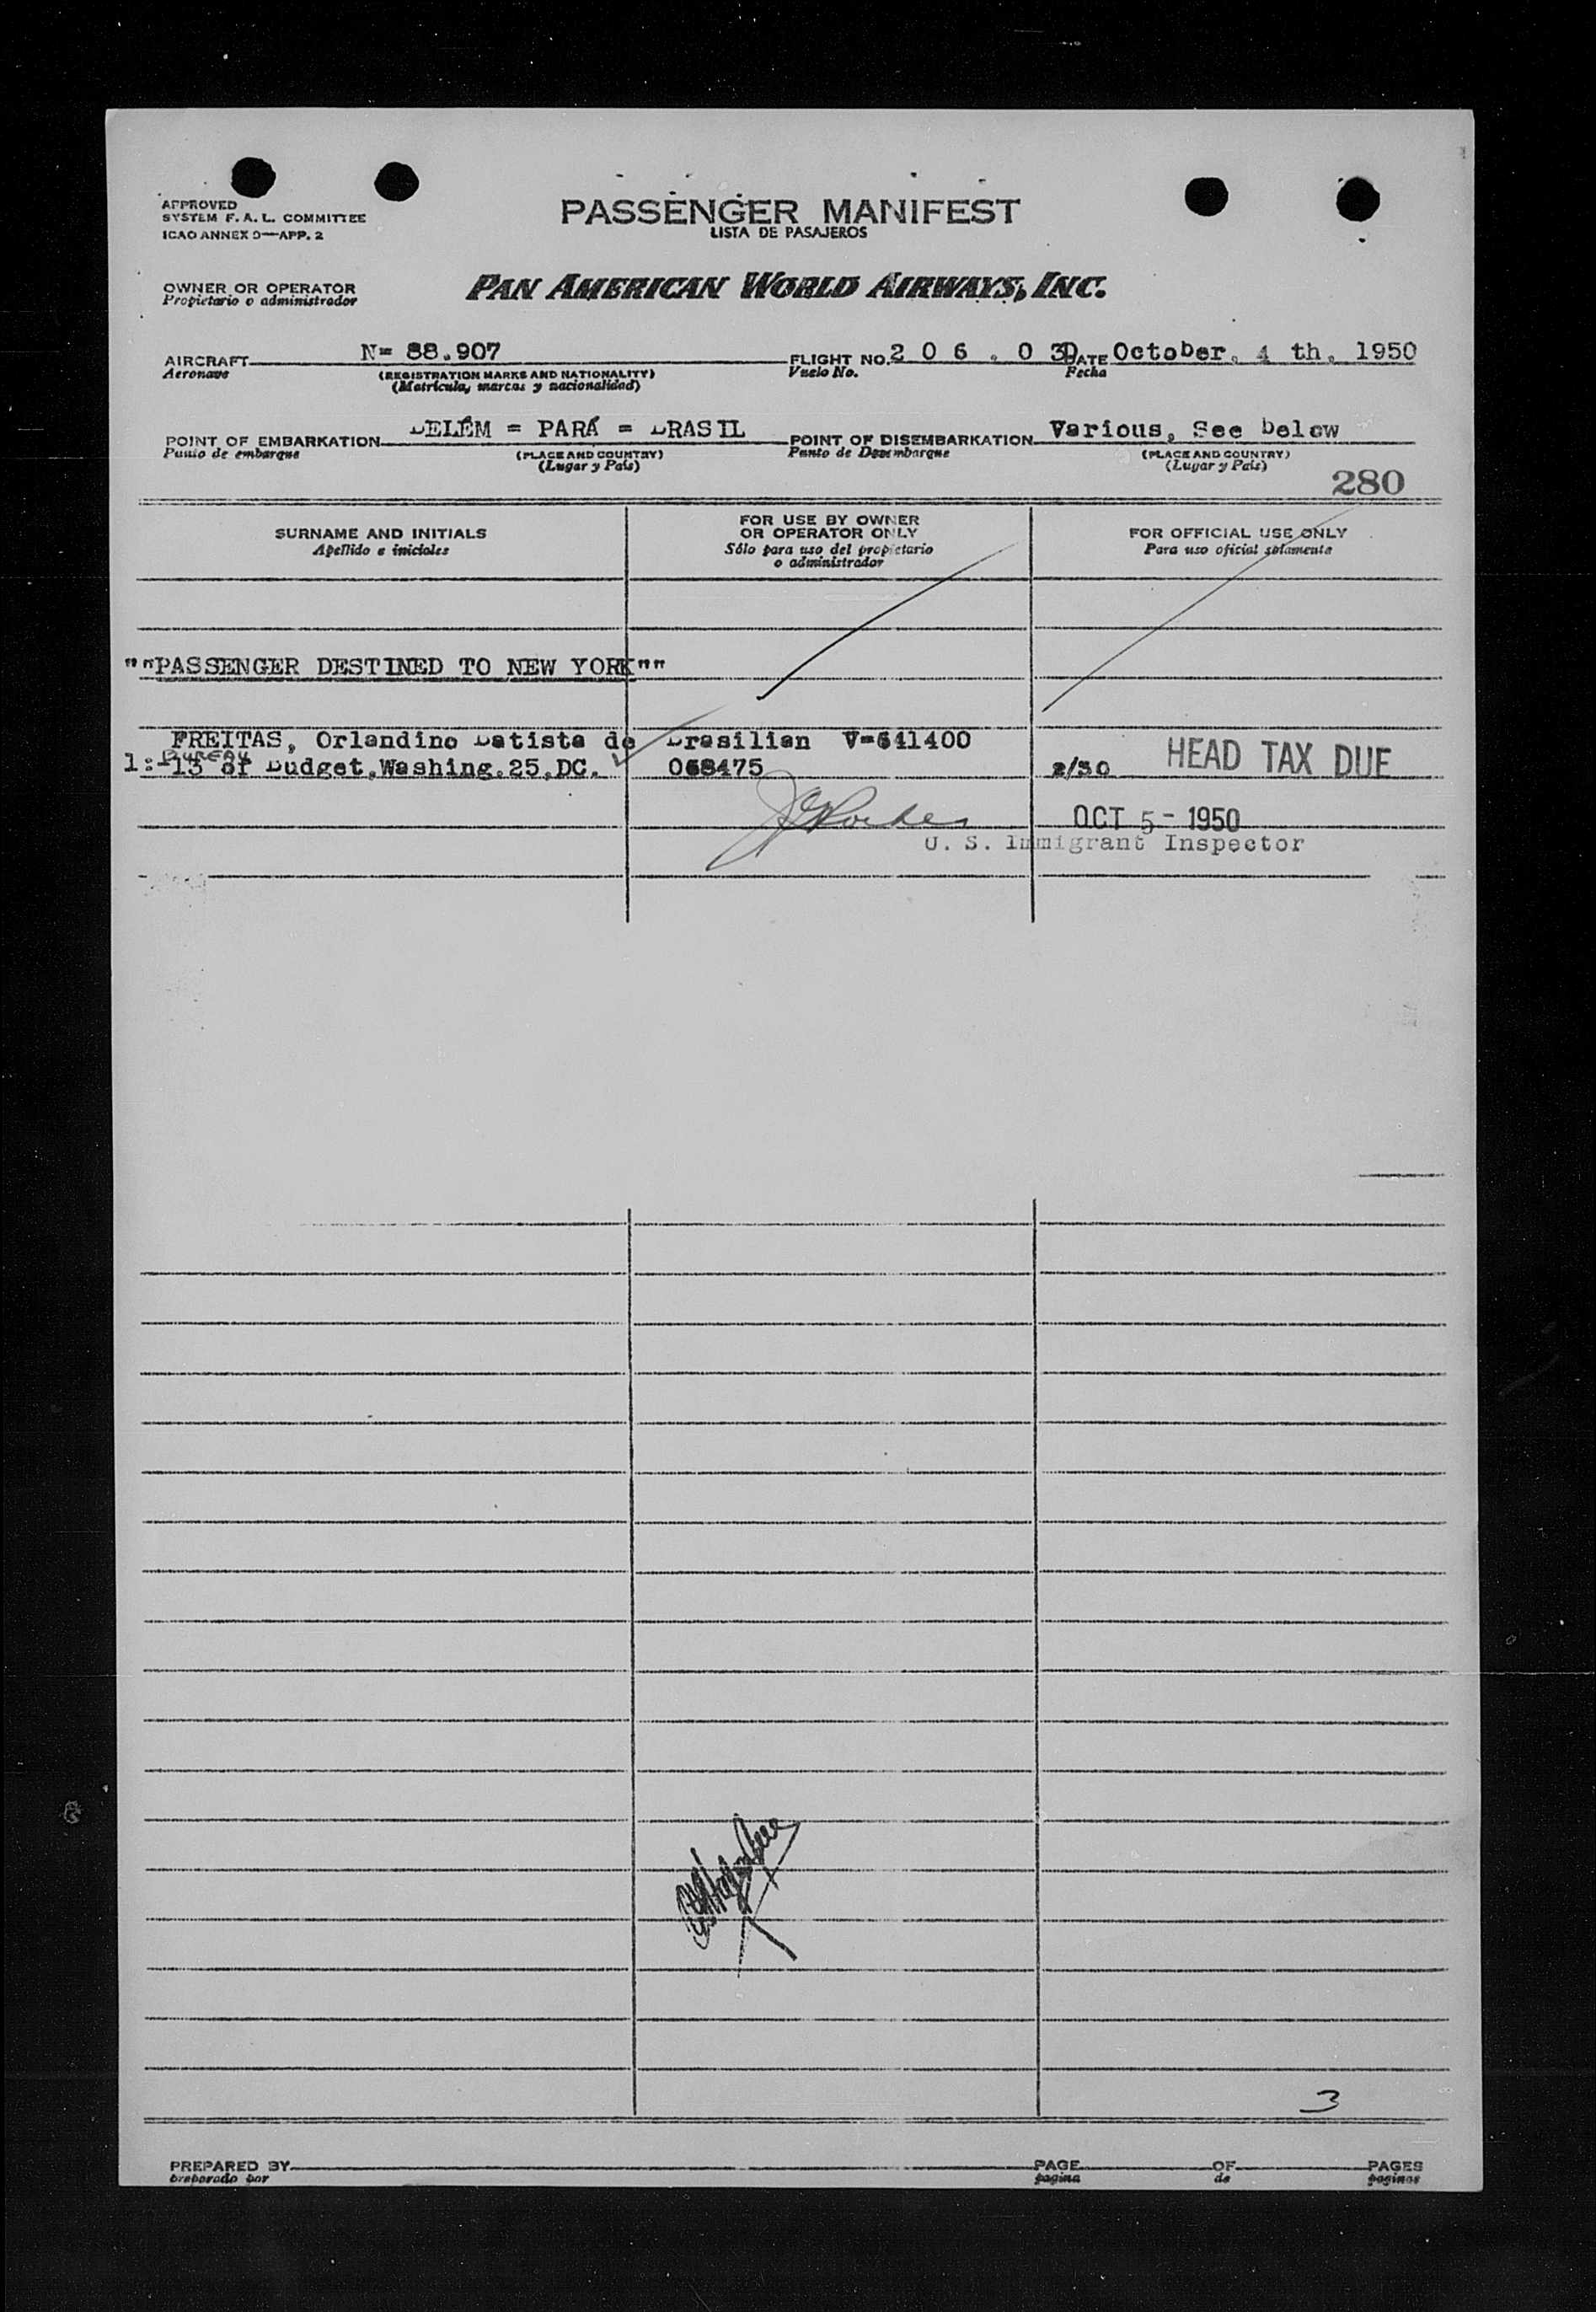 APPROVED
SYSTEM F. A. L. COMMITTEE
ICAO ANNEX 9—APP. 2
PASSENGER MANIFEST
LISTA DE PASAJEROS
OWNER OR OPERATOR
Propietario o administrador
PAN AMERICAN WORLD AIRWAYS, INC.
AIRCRAFT N= 88.907 FLIGHT NO. 2 0 6 . 0 3 DATE October, 4 th, 1950
Aeronave (REGISTRATION MARKS AND NATIONALITY) Vuelo No. Fecha
(Matrícula, marcas y nacionalidad)
POINT OF EMBARKATION BELÉM = PARÁ = BRASIL POINT OF DISEMBARKATION Various, See below
Punto de embarque (PLACE AND COUNTRY) Punto de Desembarque (PLACE AND COUNTRY)
(Lugar y País) (Lugar y País)
280
SURNAME AND INITIALS
Apellido e iniciales
FOR USE BY OWNER
OR OPERATOR ONLY
Sólo para uso del propietario
o administrador
FOR OFFICIAL USE ONLY
Para uso oficial solamente
""PASSENGER DESTINED TO NEW YORK""
FREITAS, Orlandino Batista de Brasilian V=641400
Bureau
1:=13 of Budget,Washing.25,DC. 068475 2/30 HEAD TAX DUE
OCT 5- 1950
U. S. Immigrant Inspector
3
PREPARED BY PAGE OF PAGES
preparado por pagina de paginas